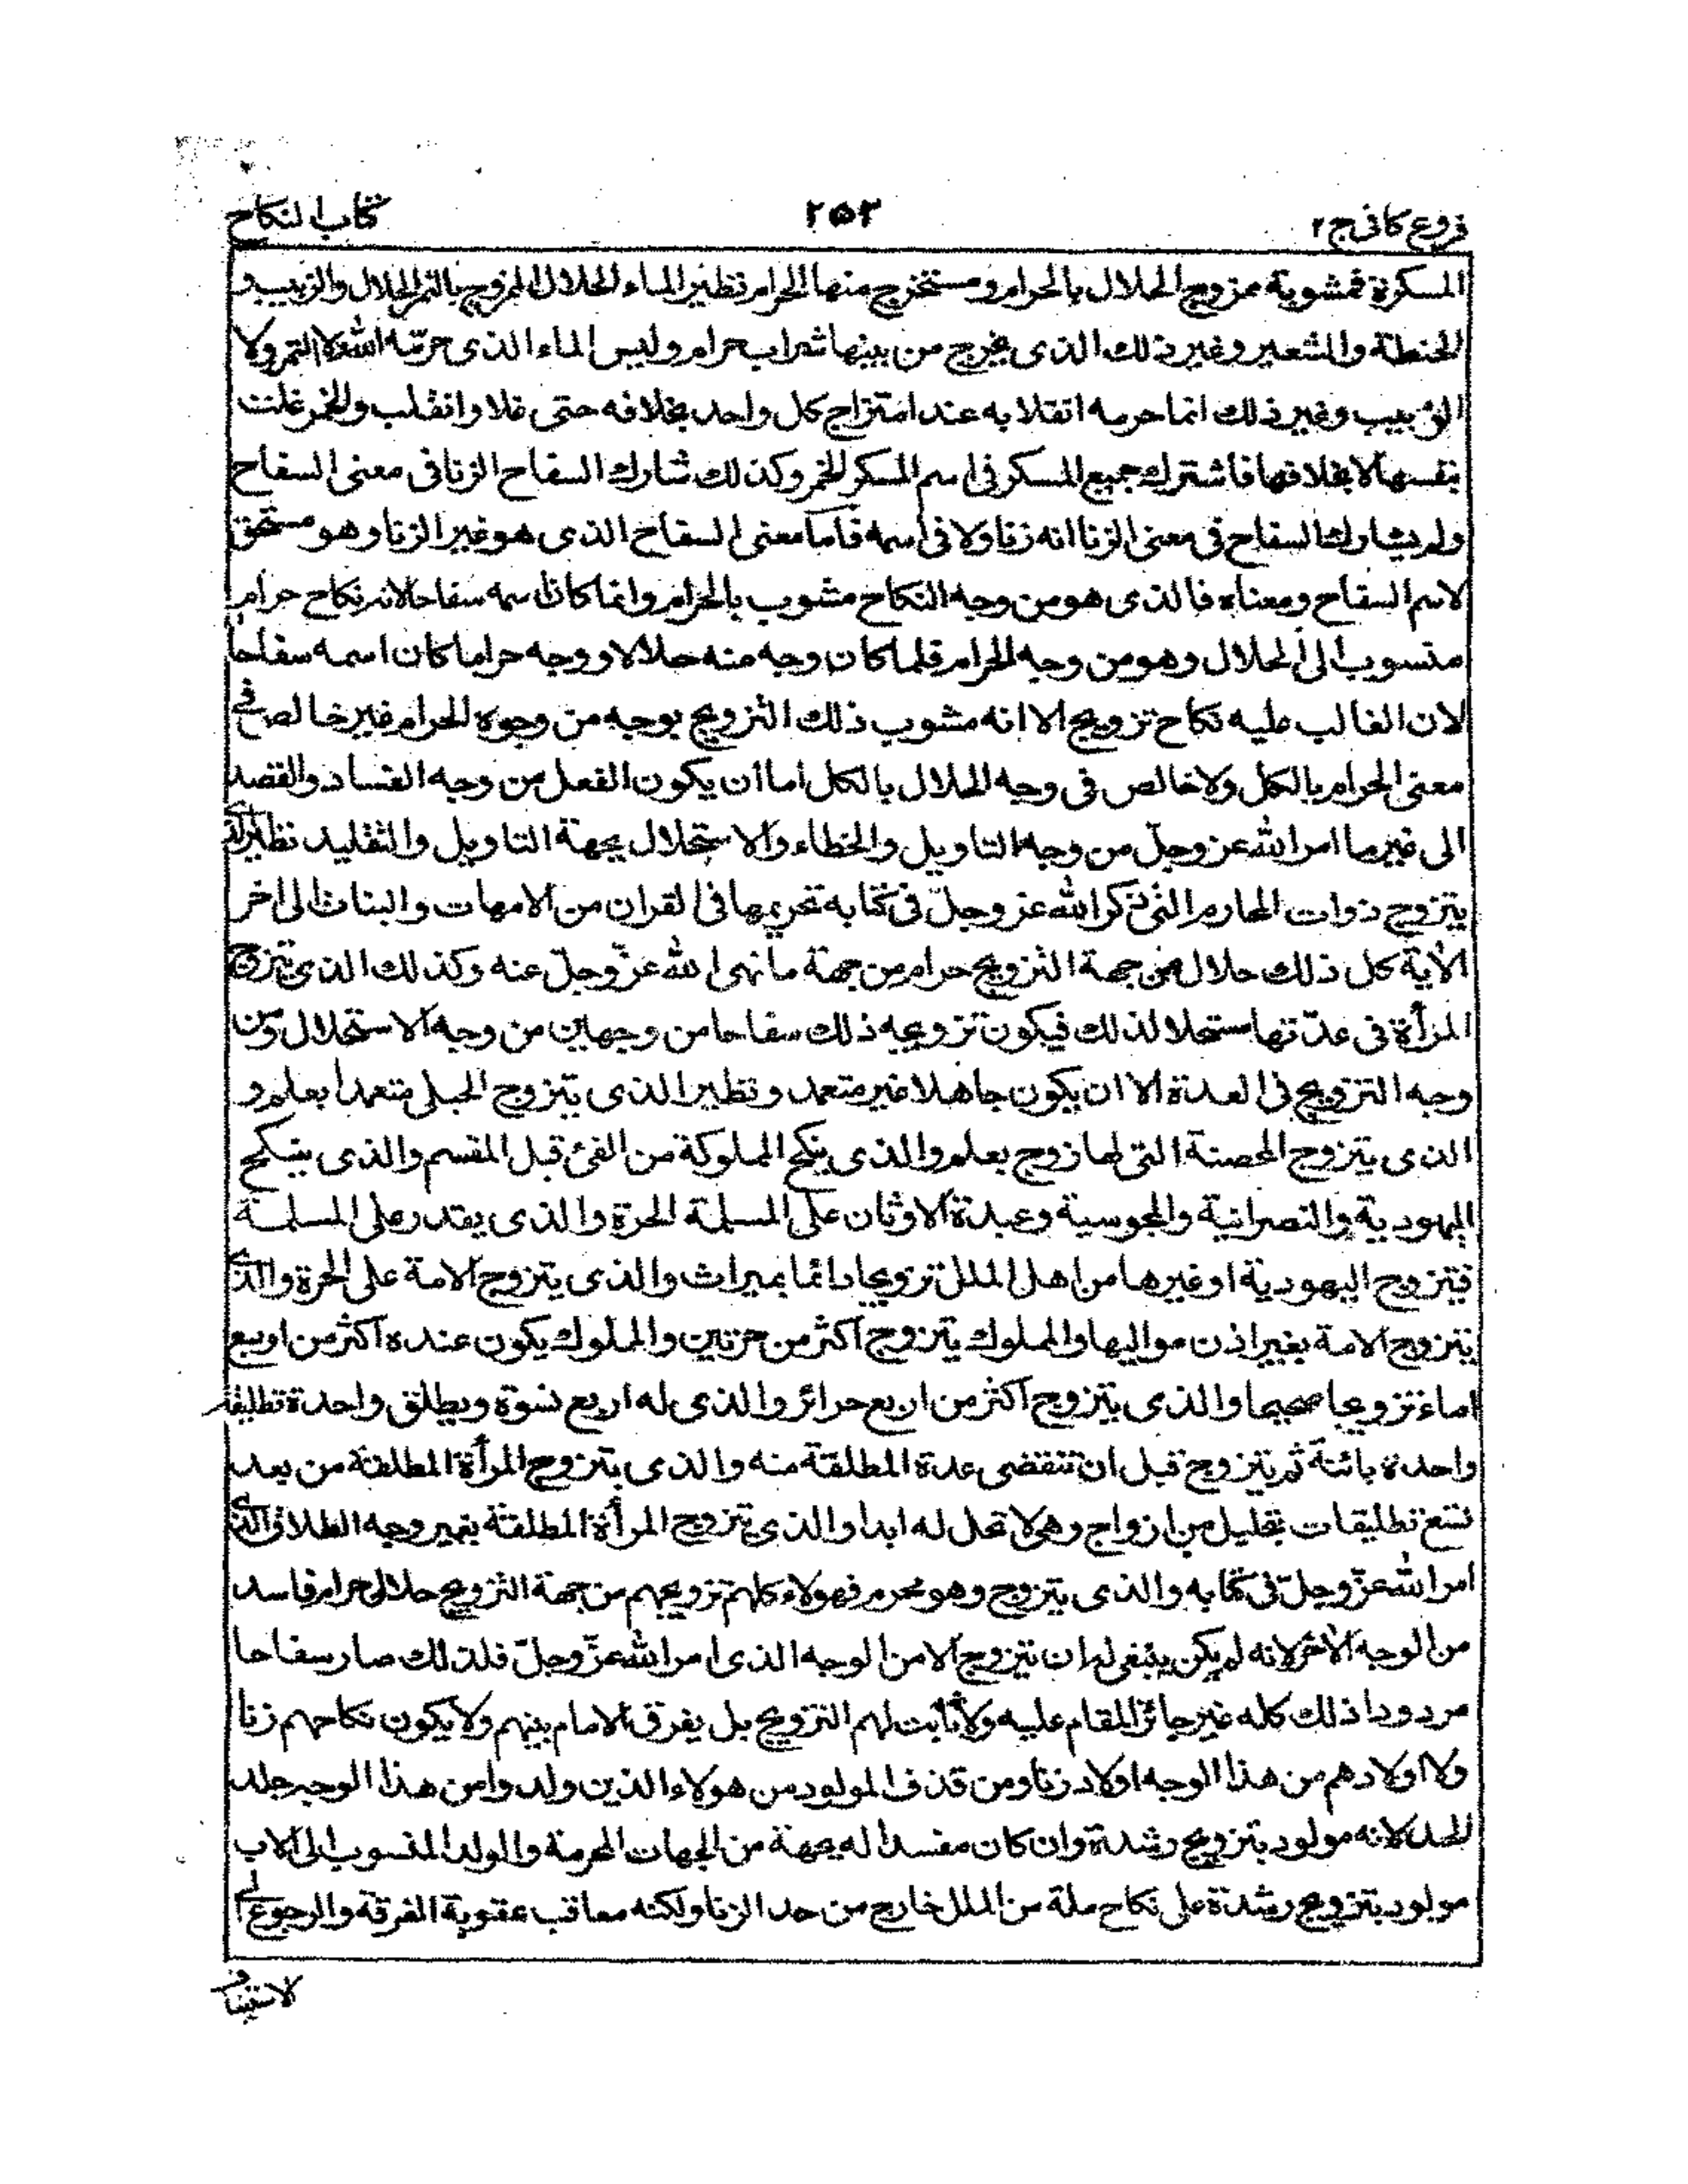 فروع کافی ج۲ ۲۵۲ کتاب النکاح
المسکرة فمشوبة ممزوج الحلال بالحرام ومستخرج منها الحرام نظیر الماء الحلال الممزوج بالتمر الحلال والزبیب و
الحنطة والشعیر وغیر ذلك الذی یخرج من بینها شراب حرام ولیس الماء الذی حرمه الله ولا التمر ولا
الزبیب وغیر ذلك انما حرمه انقلابه عند امتزاج کل واحد بخلافه حتی غلا وانقلب والخمر غلت
بنفسها لا بخلافها فاشترك جمیع المسکر فی اسم المسکر الخمر وکذلك شارك السفاح الزنا فی معنی السفاح
ولم یشارك السفاح فی معنی الزنا انه زنا ولا فی اسمه فاما معنی السفاح الذی هو غیر الزنا وهو مستحق
لاسم السفاح ومعناه فالذی هو من وجه النکاح مشوب بالحرام وانما کان اسمه سفاحا لانه نکاح حرام
منسوب الی الحلال وهو من وجه الحرام فلما کان وجه منه حلالا ووجه حراما کان اسمه سفاحا
لان الغالب علیه نکاح تزویج الا انه مشوب ذلك التزویج بوجه من وجوه الحرام غیر خالص فی
معنی الحرام بالکل ولا خالص فی وجه الحلال بالکل اما ان یکون الفعل من وجه الفساد والقصد
الی غیر ما امر الله عز وجل من وجه التاویل والخطاء والاستحلال بجهة التاویل والتقلید نظیر الذی
یتزوج ذوات المحارم التی ذکر الله عز وجلّ فی کتابه تحریمها فی القران من الامهات والبنات الی اخر
الآیة کل ذلك حلال من جهة التزویج حرام من جهة ما نهی الله عزّ وجلّ عنه وکذلك الذی یتزوج
المرأة فی عدّتها مستحلا لذلك فیکون تزویجه ذلك سفاحا من وجهین من وجه الاستحلال ومن
وجه التزویج فی العدة الا ان یکون جاهلا غیر متعمد ونظیر الذی یتزوج الحبلی متعمدا بعلم و
الذی یتزوج المحصنة التی لها زوج بعلم والذی ینکح المملوکة من الفئ قبل المقسم والذی ینکح
الیهودیة والنصرانیة والمجوسیة وعبدة الاوثان علی المسلمة الحرة والذی یقدر علی المسلمة
فیتزوج الیهودیة او غیرها من اهل الملل تزویجا دائما بمیراث والذی یتزوج الامة علی الحرة والذی
یتزوج الامة بغیر اذن موالیها والمملوك یتزوج اکثر من حرتین والمملوك یکون عنده اکثر من اربع
اماء تزویجا صحیحا والذی یتزوج اکثر من اربع حرائر والذی له اربع نسوة ویطلق واحدة تطلیقة
واحدة بائنة ثم یتزوج قبل ان تنقضی عدة المطلقة منه والذی یتزوج المرأة المطلقة من بعد
تسع تطلیقات بتحلیل من ازواج وهی لا تحل له ابدا والذی یتزوج المرأة المطلقة بغیر وجه الطلاق الذی
امر الله عزّ وجلّ فی کتابه والذی یتزوج وهو محرم فهولاء کلهم تزویجهم من جهة التزویج حلال حرام فاسد
من الوجه الآخر لانه لم یکن ینبغی له ان یتزوج الا من الوجه الذی امر الله عزّ وجلّ فلذلك صار سفاحا
مردودا ذلك کله غیر جائز المقام علیه ولا ثابت لهم التزویج بل یفرق الامام بینهم ولا یکون نکاحهم زنا
ولا اولادهم من هذا الوجه اولاد زنا ومن قذف المولود من هولاء الذین ولدوا من هذا الوجه جلد
الحد لانه مولود بتزویج رشدة وان کان مفسدا له بجهة من الجهات المحرمة والولد المنسوب الی الاب
مولود بتزویج رشدة علی نکاح ملة من الملل خارج من حد الزنا ولکنه معاقب عقوبة الفرقة والرجوع الی
الاستیناف